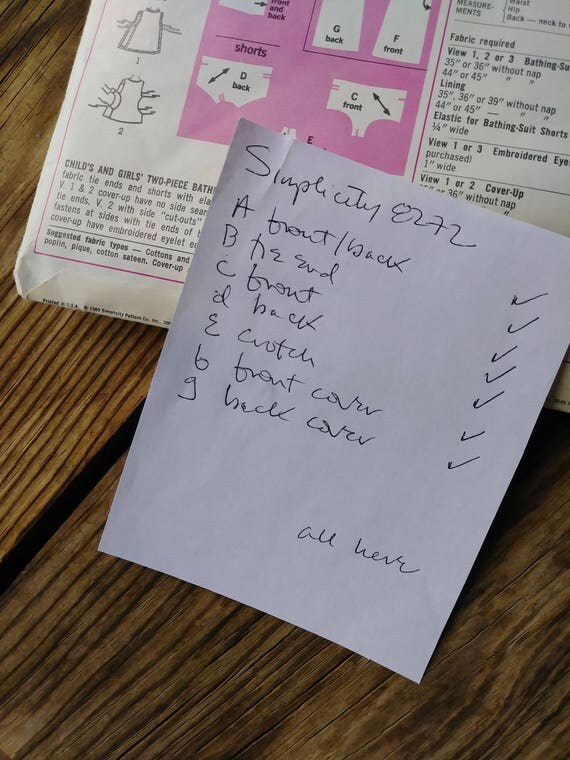 front
and
back
shorts
G
back
F
front
D
back
C
front
E
1
2
MEASURE-
MENTS
Waist
Hip
Back — neck to
Fabric required
View 1, 2 or 3 Bathing-Su
35" or 36" without nap
44" or 45" " "
Lining
35", 36" or 39" without nap
44" or 45" — " "
Elastic for Bathing-Suit Shorts
¼" wide
View 1 or 3 Embroidered Eye
purchased)
1" wide
View 1 or 2 Cover-Up
or 36" without nap
CHILD'S AND GIRLS' TWO-PIECE BATH
fabric tie ends and shorts with ela
V. 1 & 2 cover-up have no side sear
tie ends. V. 2 with side "cut-outs"
fastens at sides with tie ends of
cover-up have embroidered eyelet e
Suggested fabric types — Cottons and
poplin, pique, cotton sateen. Cover-up
Printed in U.S.A. © 1969 Simplicity Pattern Co. Inc., 200
Simplicity 8272
A front/back ✓
B tie end ✓
C front ✓
d back ✓
E crotch ✓
b front cover ✓
g back cover ✓
all here